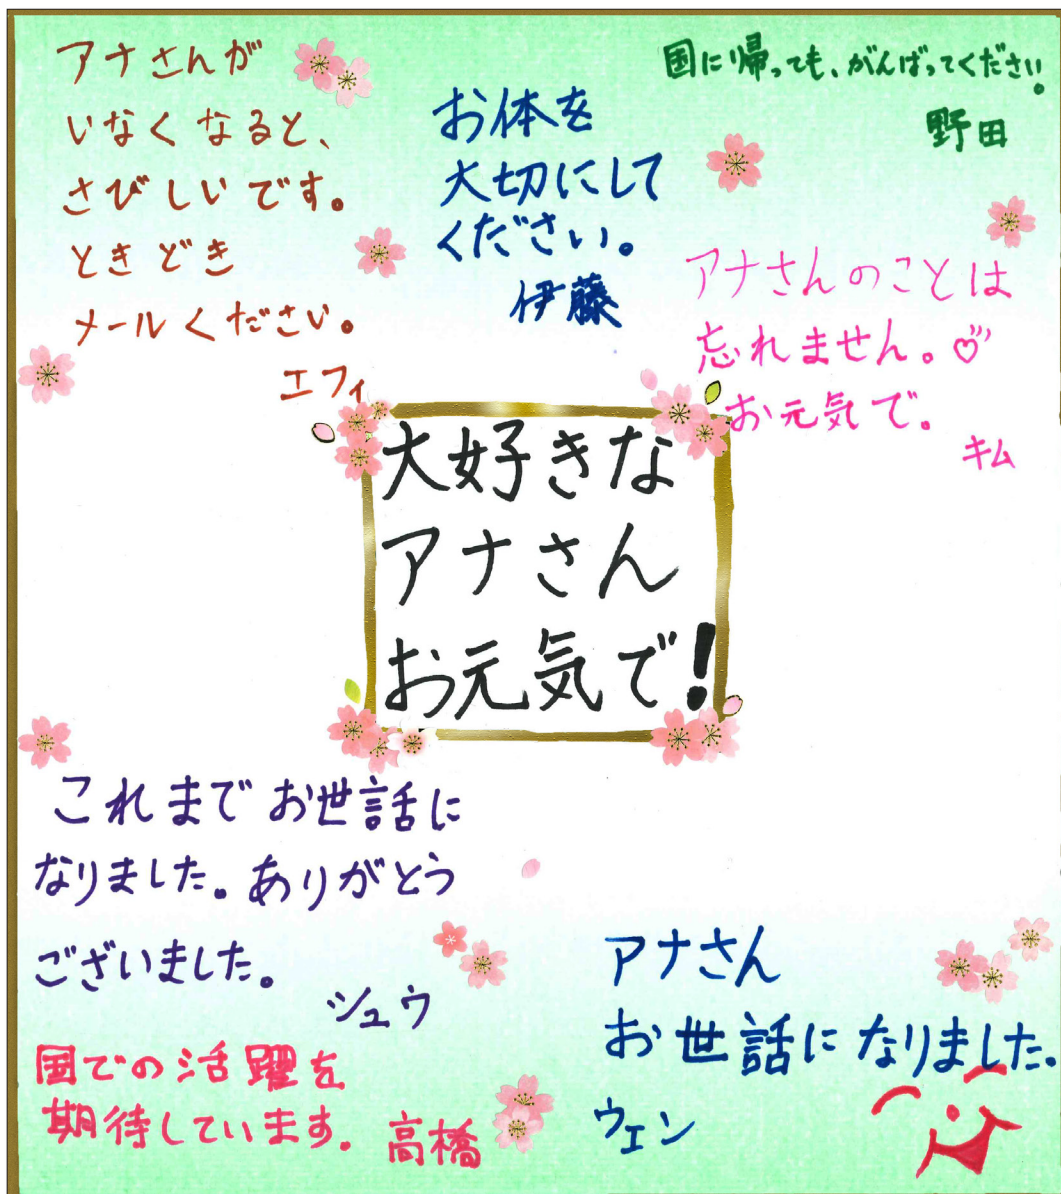 アナさんが
いなくなると、
さびしいです。
ときどき
メールください。
エフィ
お体を
大切にして
ください。
伊藤
国に帰っても、がんばってください。
野田
アナさんのことは
忘れません。
お元気で。
キム
大好きな
アナさん
お元気で！
これまでお世話に
なりました。ありがとう
ございました。
シュウ
国での活躍を
期待しています。
高橋
アナさん
お世話になりました。
ウェン